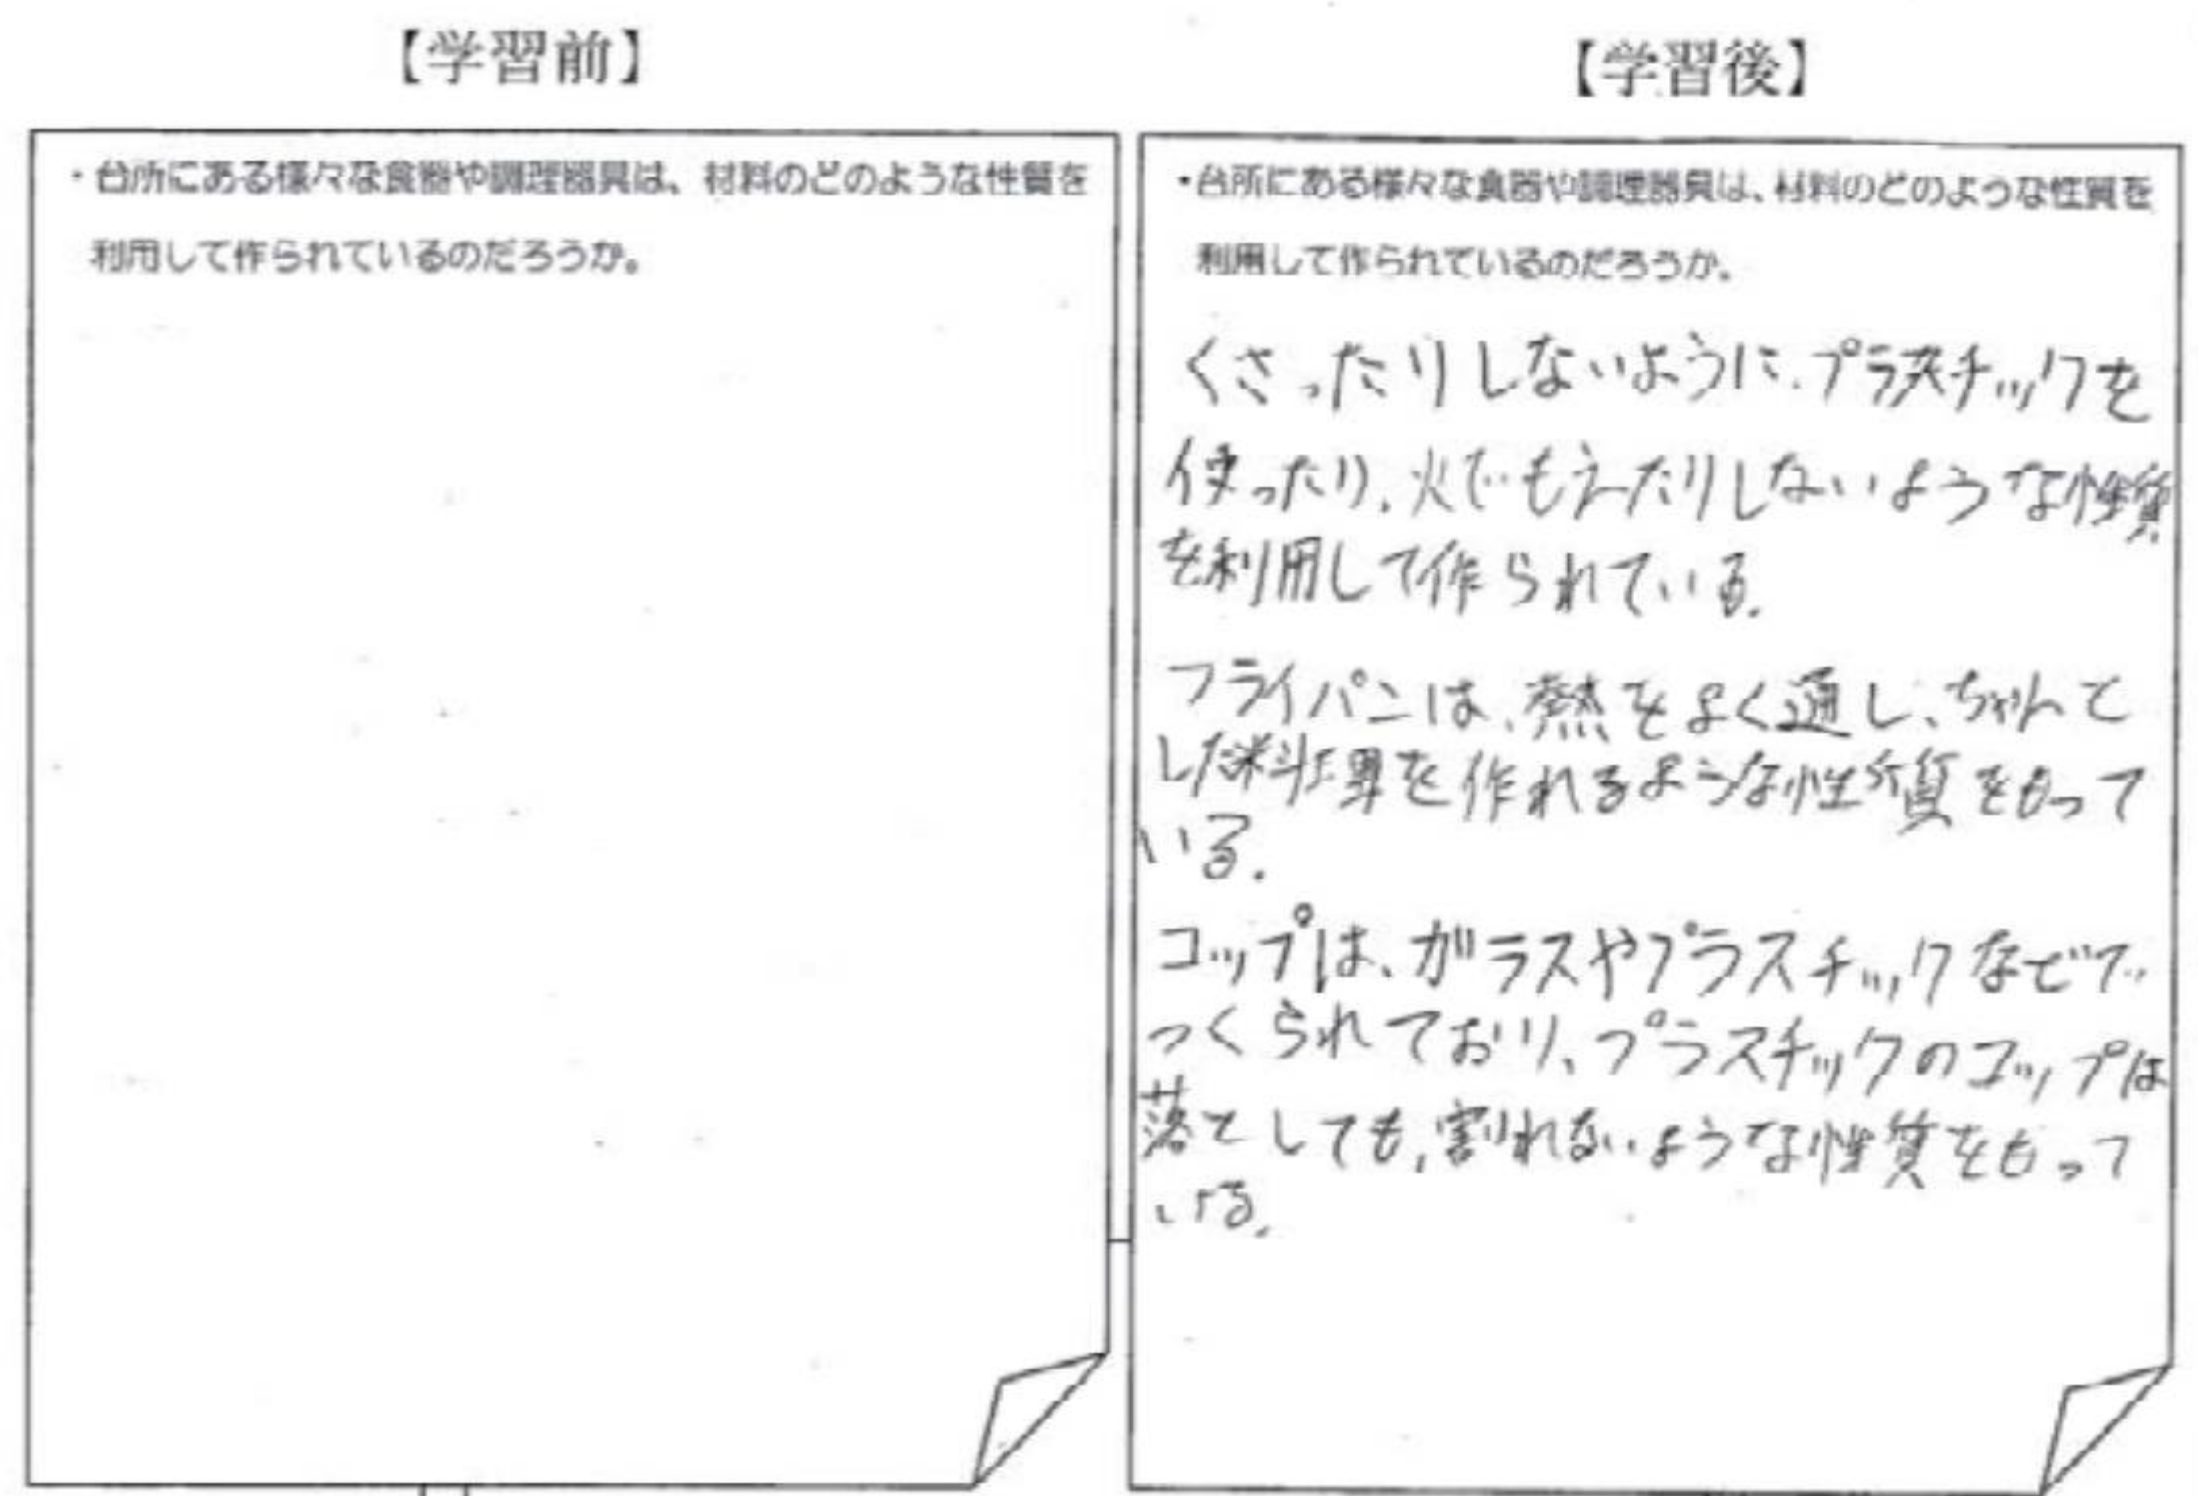 【学習前】
・台所にある様々な食器や調理器具は、材料のどのような性質を
利用して作られているのだろうか。
【学習後】
・台所にある様々な食器や調理器具は、材料のどのような性質を
利用して作られているのだろうか。
くさったりしないように、プラスチックを
使ったり、火でもえたりしないような性質
を利用して作られている。
フライパンは、熱をよく通し、ちゃんと
した料理を作れるような性質をもって
いる。
コップは、ガラスやプラスチックなどで
つくられており、プラスチックのコップは
落としても、割れないような性質をもって
いる。